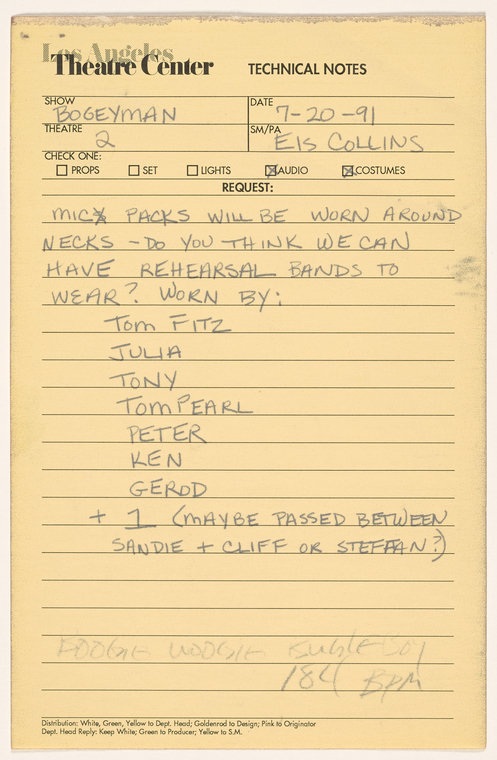 Los Angeles
Theatre Center TECHNICAL NOTES
SHOW BOGEYMAN DATE 7-20-91
THEATRE 2 SM/PA EIS COLLINS
CHECK ONE:
PROPS SET LIGHTS AUDIO COSTUMES
REQUEST:
MIC PACKS WILL BE WORN AROUND
NECKS - DO YOU THINK WE CAN
HAVE REHEARSAL BANDS TO
WEAR? WORN BY:
TOM FITZ
JULIA
TONY
TOM PEARL
PETER
KEN
GEROD
+ 1 (MAYBE PASSED BETWEEN
SANDIE + CLIFF OR STEFFAN?)
BOOGIE WOOGIE BUGLE BOY
184 BPM
Distribution: White, Green, Yellow to Dept. Head; Goldenrod to Design; Pink to Originator
Dept. Head Reply: Keep White; Green to Producer; Yellow to S.M.